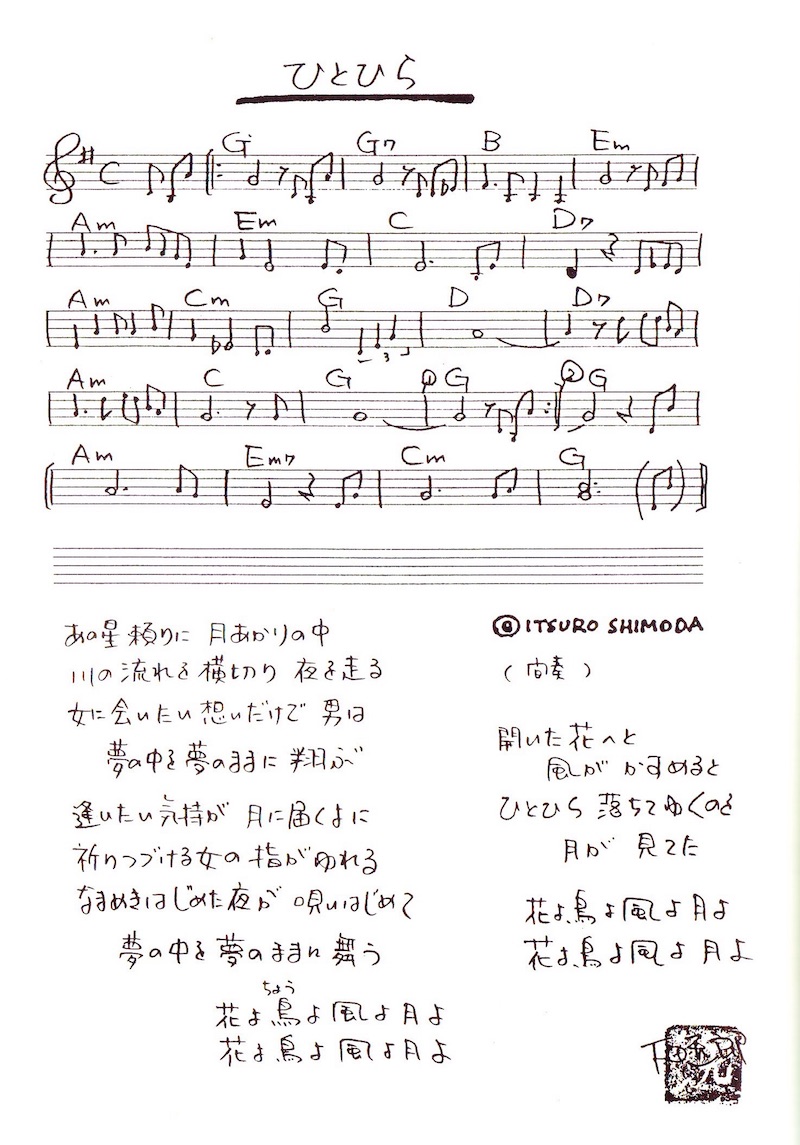 ひとひら
C
G G7 B Em
Am Em C D7
Am Cm G D D7
3
Am C G ① G ② G
Am Em7 Cm G
あの星頼りに 月あかりの中
川の流れを横切り 夜を走る
女に会いたい想いだけで 男は
夢の中を夢のままに 翔ぶ
逢いたい気持が 月に届くよに
祈りつづける女の指がゆれる
なまめきはじめた夜が 唄いはじめて
夢の中を夢のままに 舞う
ちょう
花よ鳥よ風よ月よ
花よ鳥よ風よ月よ
ITSURO SHIMODA
(間奏)
開いた花へと
風が かすめると
ひとひら 落ちてゆくのを
月が 見てた
花よ鳥よ風よ月よ
花よ鳥よ風よ月よ